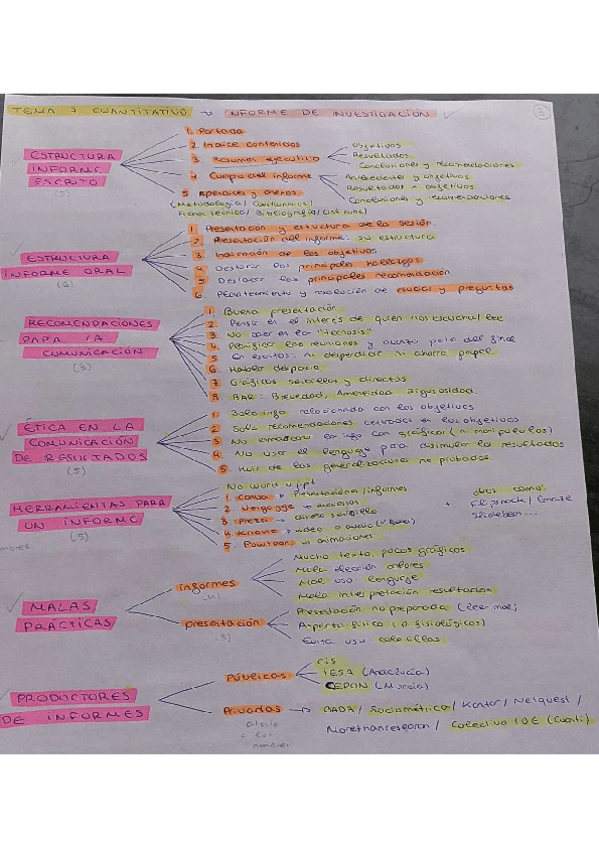 TEMA 7 CUANTITATIVO → INFORME DE INVESTIGACIÓN
3
ESTRUCTURA INFORME ESCRITO
(5)
1. Portada
2. Indice contenidos
3. Resumen ejecutivo
Objetivos
Resultados
Conclusiones y recomendaciones
4. Cuerpo del informe
Antecedente y objetivos
Resultados y objetivos
Conclusiones y recomendaciones
5. Apéndices y anexos
(Metodología / Cuestionarios /
Ficha técnica / Bibliografía / Link nube)
ESTRUCTURA INFORME ORAL
(6)
1. Presentación y estructura de la sesión.
2. Presentación del informe: su estructura
3. de los objetivos
4. Destacar los principales hallazgos
5. Destacar las principales recomendación
6. Planteamiento y resolución de dudas y preguntas
RECOMENDACIONES PARA LA COMUNICACIÓN
(8)
1. Buena presentación
2. Pensar en el interés de quien nos escucha/lee
3. No caer en la "tecnosis"
4. Planificar las reuniones y avanza para del final
5. En escritos: ni desperdiciar ni ahorra papel
6. Hablar despacio
7. Gráficos sencillos y directos
8. BAR: Brevedad, Amenidad, Rigurosidad.
ÉTICA EN LA COMUNICACIÓN DE RESULTADOS
(5)
1. Solo info relacionada con los objetivos
2. Solo recomendaciones centrados en los objetivos
3. No enmascarar la info con gráficos (o manipularlos)
4. No usar el lenguaje para disimular los resultados
5. Huir de las generalizaciones no probadas
HERRAMIENTAS PARA UN INFORME
(5)
No word y ppt
1. Canva → Presentación / informes
2. Vengagge →
3. Prezi → diseño sencillo
4. Knovio → video o audio
5. Powtoon → animaciones
+ otras como:
Flipsnack / Emaze
Slidebean...
MALAS PRÁCTICAS
informes
(4)
Mucho texto, pocos gráficos
Mala elección colores
Mal uso lenguaje
Mala interpretación resultados
presentación
(3)
Presentación no preparada (leer mal)
Aspecto físico (o fisiológicos)
Evita usa coletillas
PRODUCTORES DE INFORMES
Públicas
CIS
IESA (Andalucía)
CEPON (Murcia)
Privadas → GAD3 / Sociométrica / Kantar / Netquest /
Morethanresearch / Colectivo IOE (Cuanti)